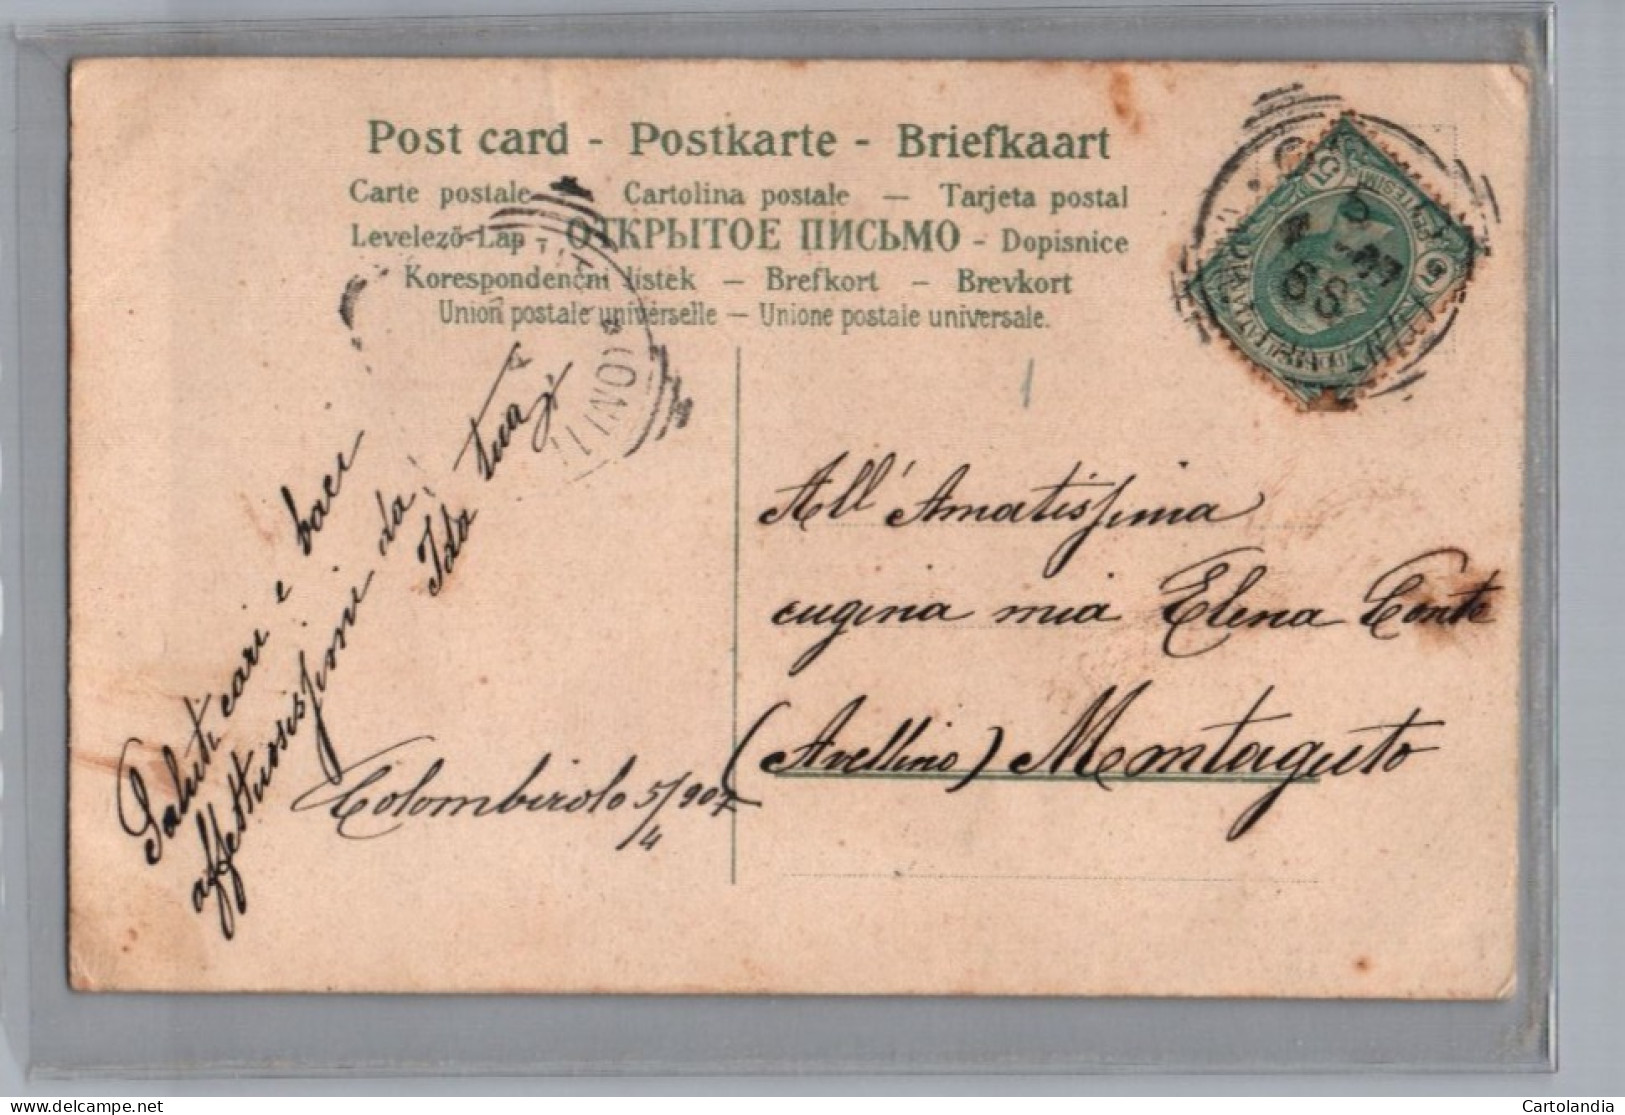 Post card - Postkarte - Briefkaart
Carte postale — Cartolina postale — Tarjeta postal
Levelező-Lap - ОТКРЫТОЕ ПИСЬМО - Dopisnice
Korespondenční lístek — Brefkort — Brevkort
Union postale universelle — Unione postale universale.
1
All' Amatissima
cugina mia Elena Conte
(Avellino) Montaguto
Saluti cari e baci
affettuosissimi da
Ida tua
Colombirolo 5/4 907
delcampe.net
Cartolandia